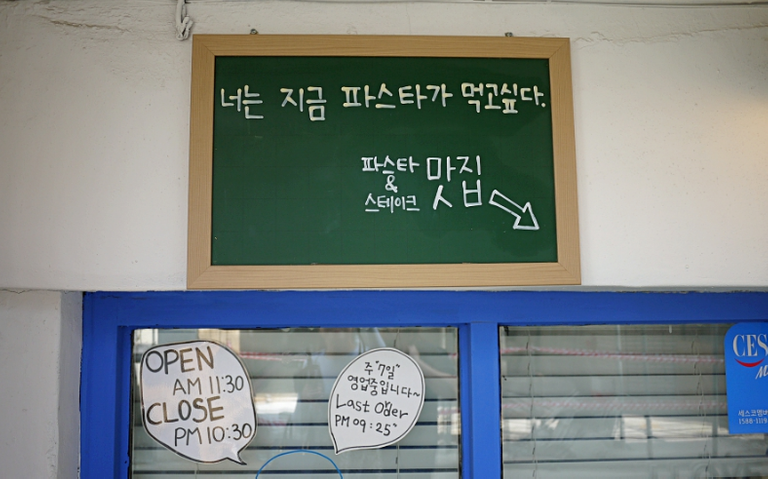 너는 지금 파스타가 먹고싶다.
파스타
&
스테이크
맛집
OPEN
AM 11:30
CLOSE
PM 10:30
주 "7일"
영업중입니다~
Last Oder
PM 09:25"
CES
세스코멤버